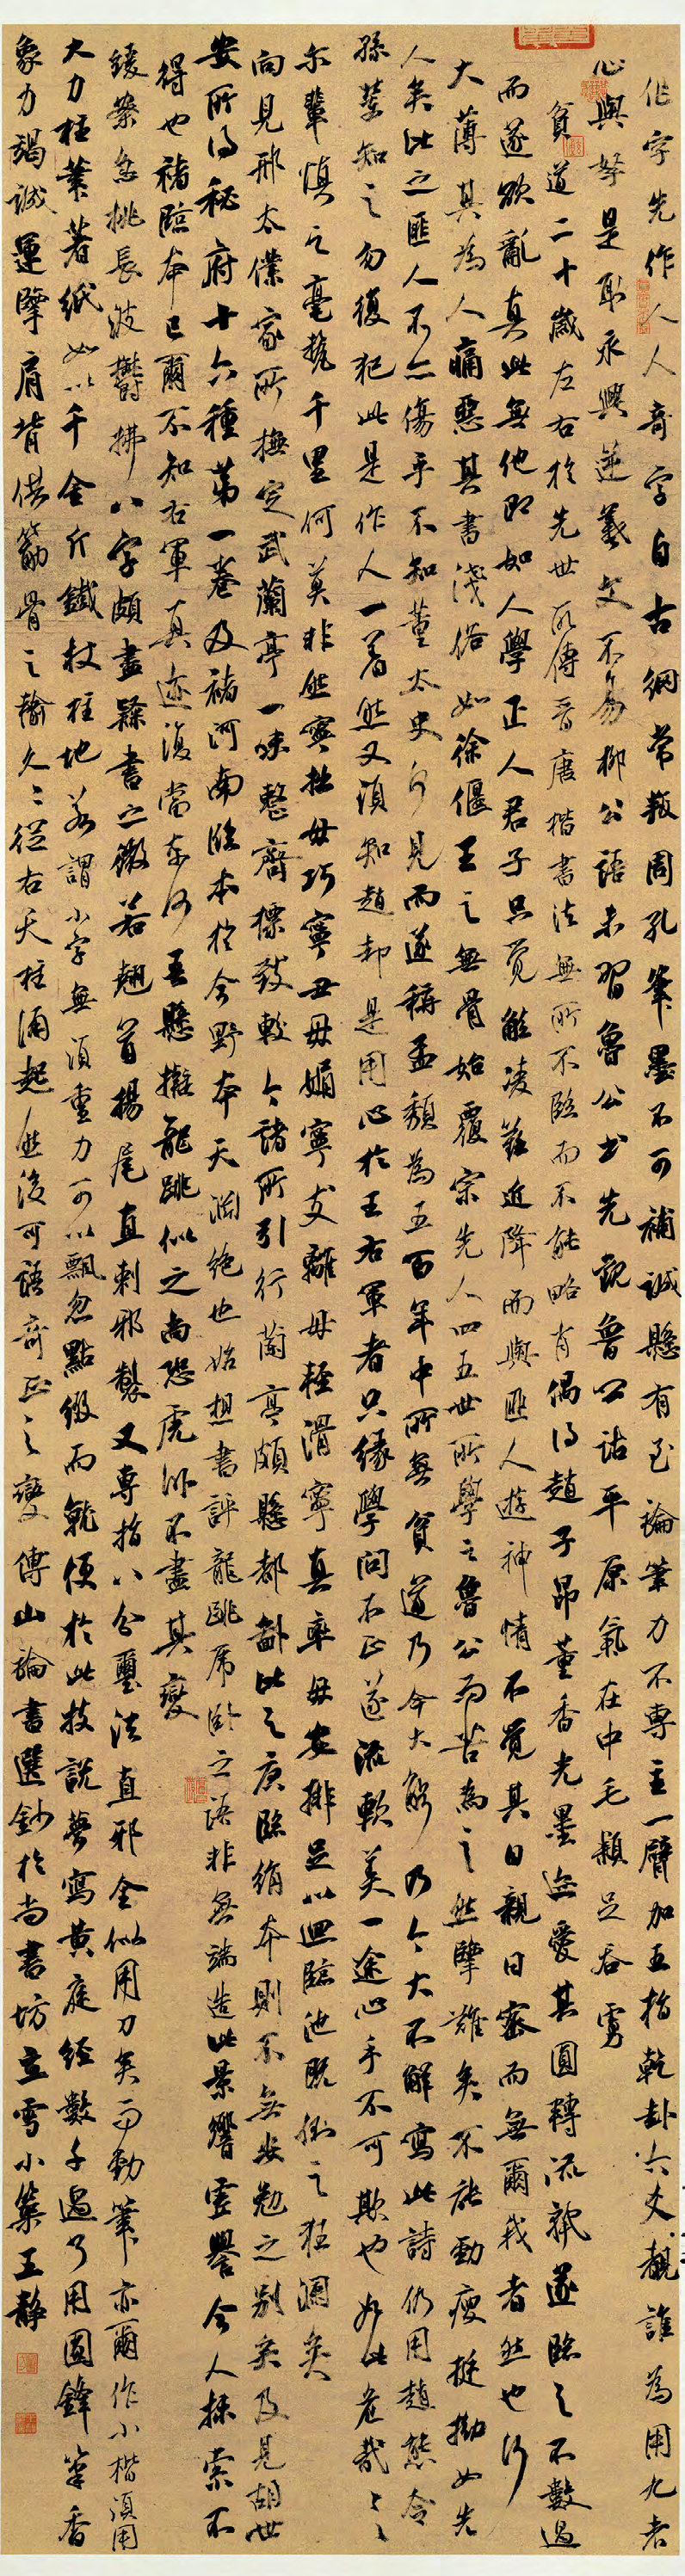 作字先作人人奇字自古綱常叛周孔筆墨不可補誠懸有至論筆力不專主一臂加五指乾卦六爻覩誰為用九者
心與孥是取永興逆羲文不易柳公語未習魯公書先觀魯公詁平原氣在中毛穎足吞虜
貧道二十歲左右於先世所傳晉唐楷書法無所不臨而不能略肖偶得趙子昂董香光墨迹愛其圓轉流麗遂臨之不數過
而遂欲亂真此無他即如人學正人君子只覺觚稜難近降而與匪人遊神情不覺其日親日密而無爾我者然也行
大薄其為人痛惡其書淺俗如徐偃王之無骨始覆宗先人四五世所學之魯公而苦為之然腕難矣不能勁瘦挺拗如先
人矣比之匪人不亦傷乎不知董太史何見而遂稱孟頫為五百年中所無貧道乃今大解乃今大不解寫此詩仍用趙態令
孫輩知之勿復犯此是作人一著然又須知趙却是用心於王右軍者只緣學問不正遂流軟美一途心手不可欺也如此危哉危哉
爾輩慎之毫氂千里何莫非然寧拙毋巧寧丑毋媚寧支離毋輕滑寧真率毋安排足以迴臨池既倒之狂瀾矣
向見邢太僕家所撫定武蘭亭一味整齊標致較今諸所引行蘭亭頗懸都勮比之庚臨絹本則不無安勉之別矣及見胡世
安所得秘府十六種第一卷及褚河南臨本於今野本天淵絕也始想書評龍跳虎臥之語非無端造此景響虛譽今人摸索不
得也褚臨本已爾不知右軍真迹復當奈何吾懸擬龍跳似之尚恐虎臥不盡其變
緩案急挑長波鬱拂八字頗盡隸書之微若翹首揚尾直刺邪製又專指八分璽法直邪全似用刀矣而勁筆亦爾作小楷須用
大力柱筆著紙如以千金斤鐵杖柱地若謂小字無須重力可以飄忽點綴而就便於此技說夢寫黃庭經數千過了用圓鋒筆香
象力竭誠運腕肩背供筋骨之輸久久從右天柱涌起然後可語奇正之變傅山論書選鈔於尚書坊立雪小築王靜